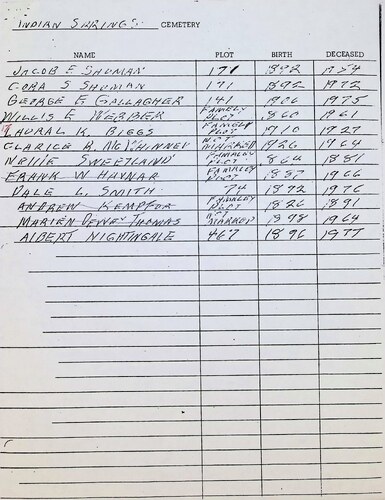 INDIAN SPRINGS CEMETERY
NAME PLOT BIRTH DECEASED
JACOB E SHUMAN 171 1892 1954
CORA S SHUMAN 171 1892 1972
GEORGE E GALLAGHER 141 1906 1975
WILLIS E WERBER FAMELY PLOT 1860 1961
THURAL K. BIGGS FAMELY PLOT 1910 1927
CLARICE B. McKINNEY NOT MARKED 1926 1964
NELLIE SWEETLAND FAMALEY PLOT 1864 1881
FRANK W HAYNAR FAMALEY PLOT 1887 1966
DALE L. SMITH 74 1892 1976
ANDREW KEMPFOR FAMALEY PLOT 1826 1891
MARIEN DEWEY THOMAS NOT MARKED 1898 1964
ALBERT NIGHTINGALE 467 1896 1977